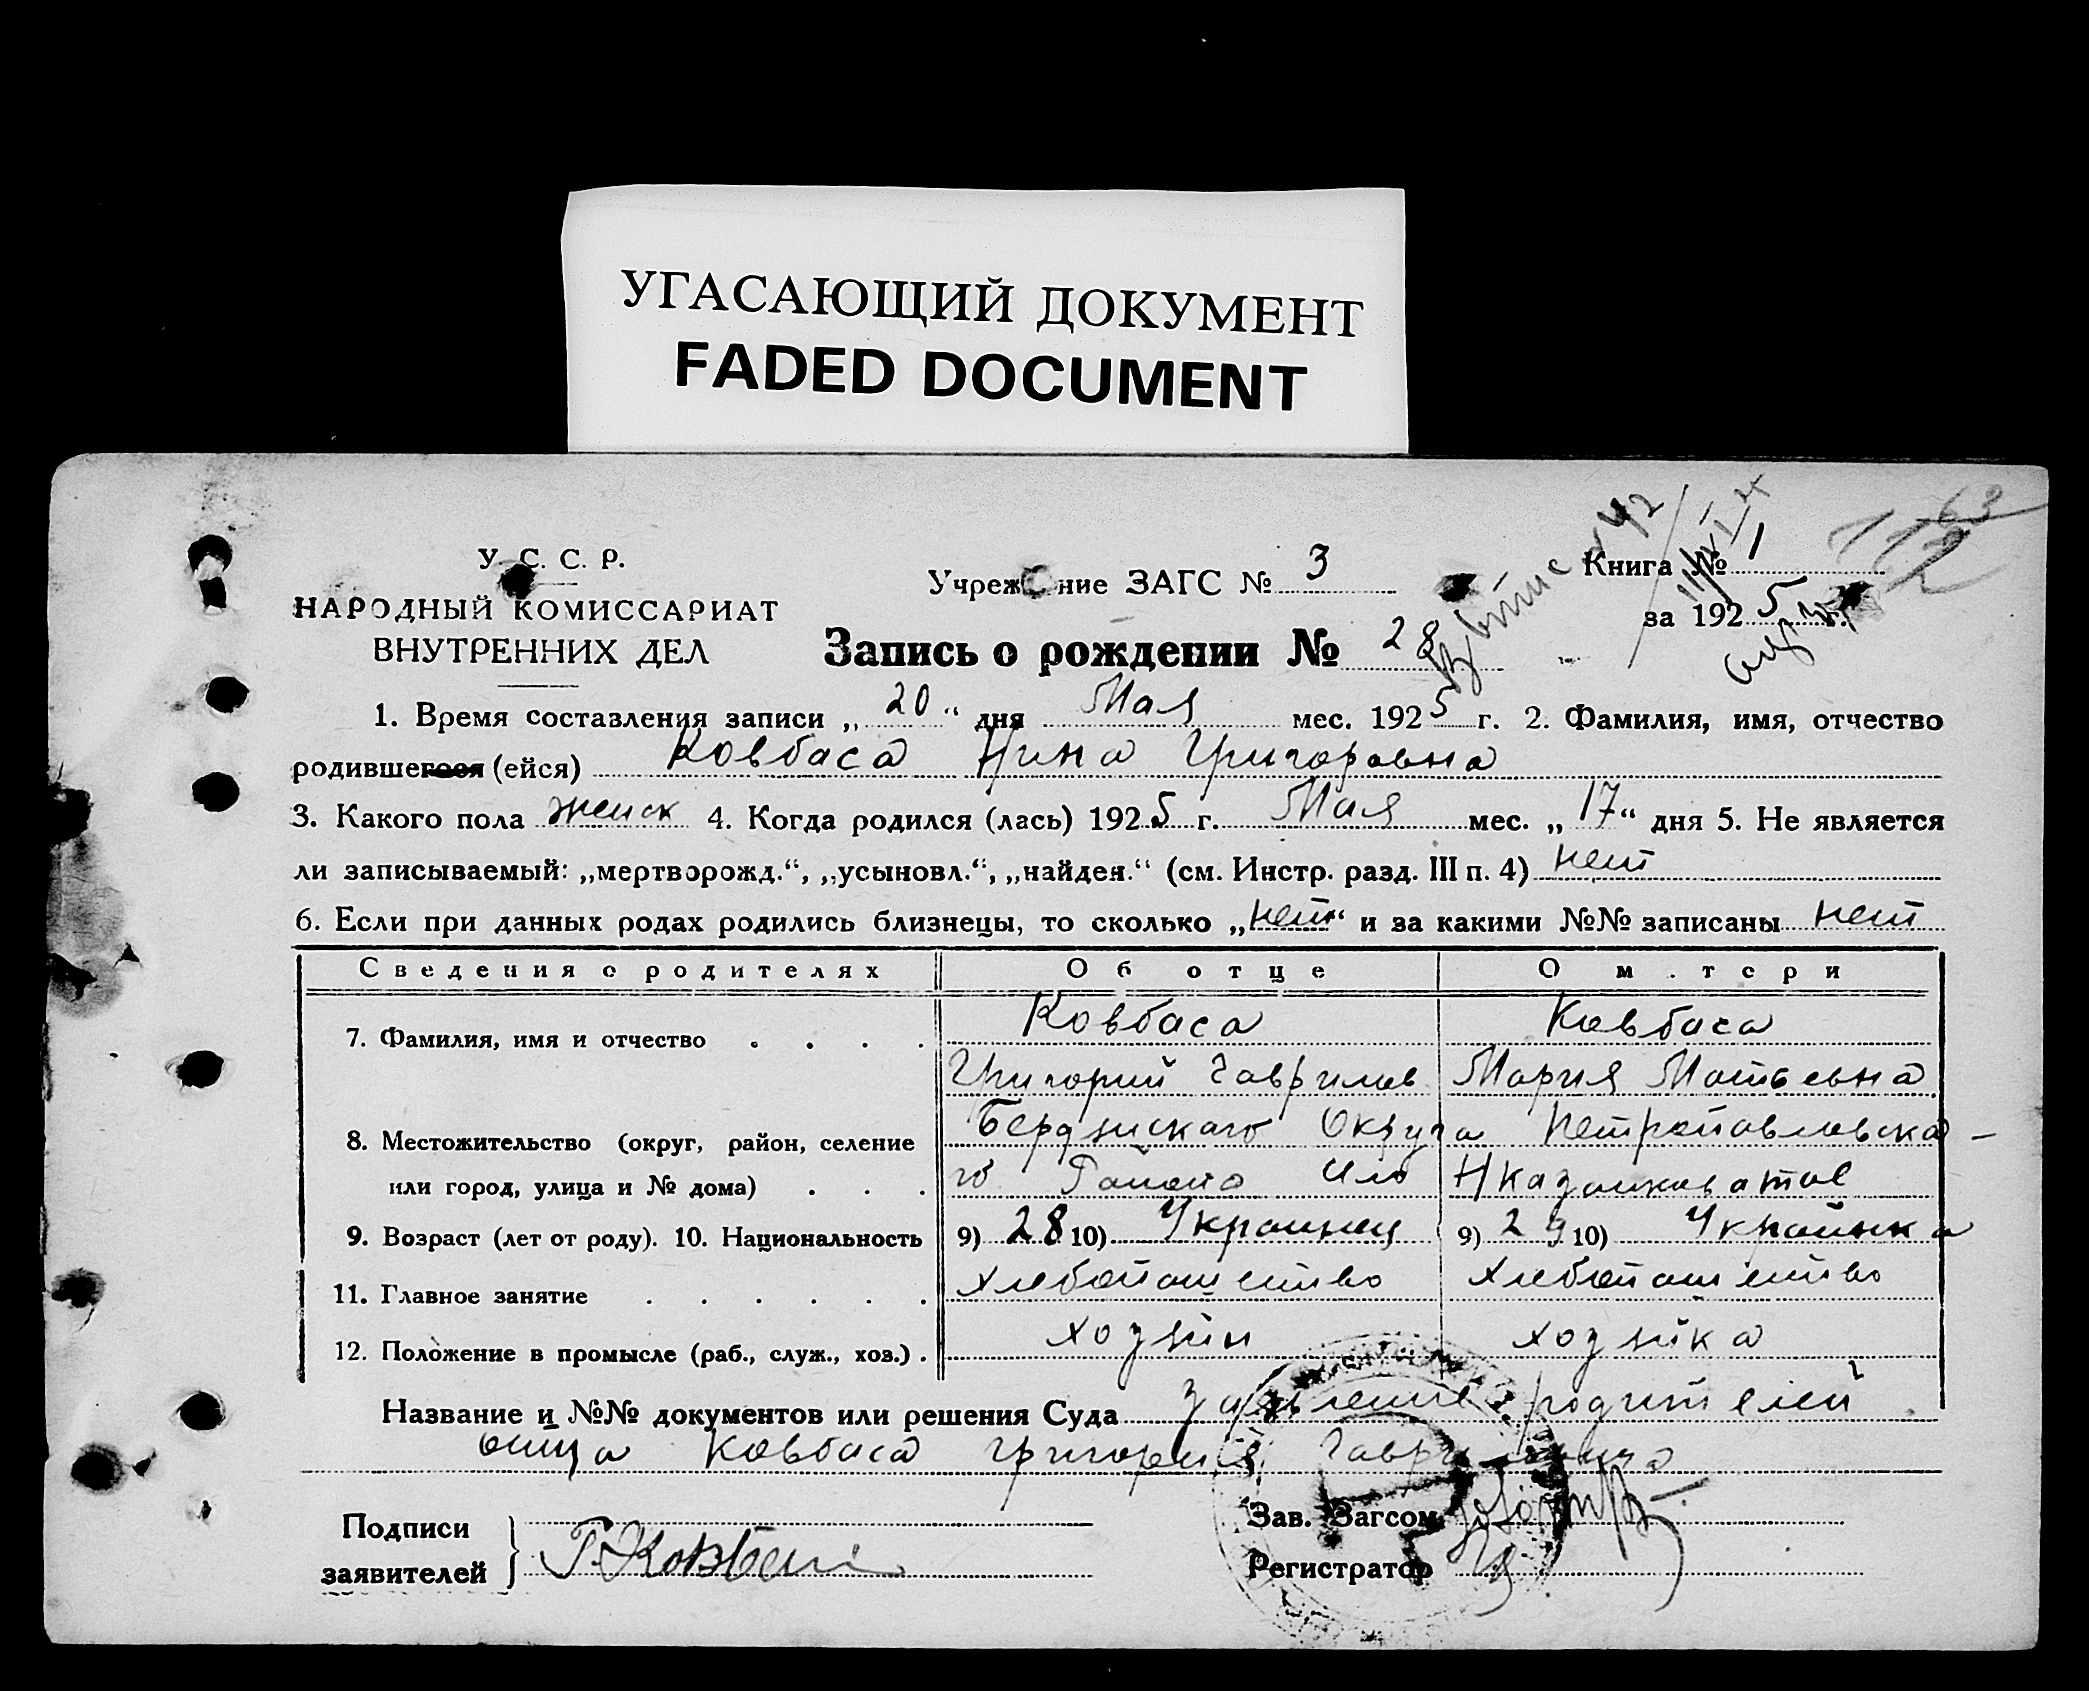 УГАСАЮЩИЙ ДОКУМЕНТ
FADED DOCUMENT
63
112
У. С. С. Р.
НАРОДНЫЙ КОМИССАРИАТ
ВНУТРЕННИХ ДЕЛ
Учреж ние ЗАГС № 3
Книга № 1
за 1925 г.
Запись о рождении № 28
1. Время составления записи „20“ дня Мая мес. 1925 г. 2. Фамилия, имя, отчество
родившегося (ейся) Ковбаса Нина Григоровна
3. Какого пола женск 4. Когда родился (лась) 1925 г. Мая мес. „17“ дня 5. Не является
ли записываемый: „мертворожд.“, „усыновл.“, „найден.“ (см. Инстр. разд. III п. 4) нет
6. Если при данных родах родились близнецы, то сколько „нет“ и за какими №№ записаны нет
Сведения о родителях Об отце О м.тери
7. Фамилия, имя и отчество . . . . Ковбаса Ковбаса
Григорий Гаврилов Мария Матвеевна
8. Местожительство (округ, район, селение Бердянского Округа Петропавловска-
или город, улица и № дома) . . . го Района
9. Возраст (лет от роду). 10. Национальность 9) 28 10) Украинец 9) 29 10) Украинка
11. Главное занятие . . . . . . Хлебопашество Хлебопашество
12. Положение в промысле (раб., служ., хоз.) . хозяин хозяйка
Название и №№ документов или решения Суда заявление родителей
отца Ковбаса Григория Гавриловича
Подписи
заявителей } Г. Ковбаса
Зав. Загсом
Регистратор